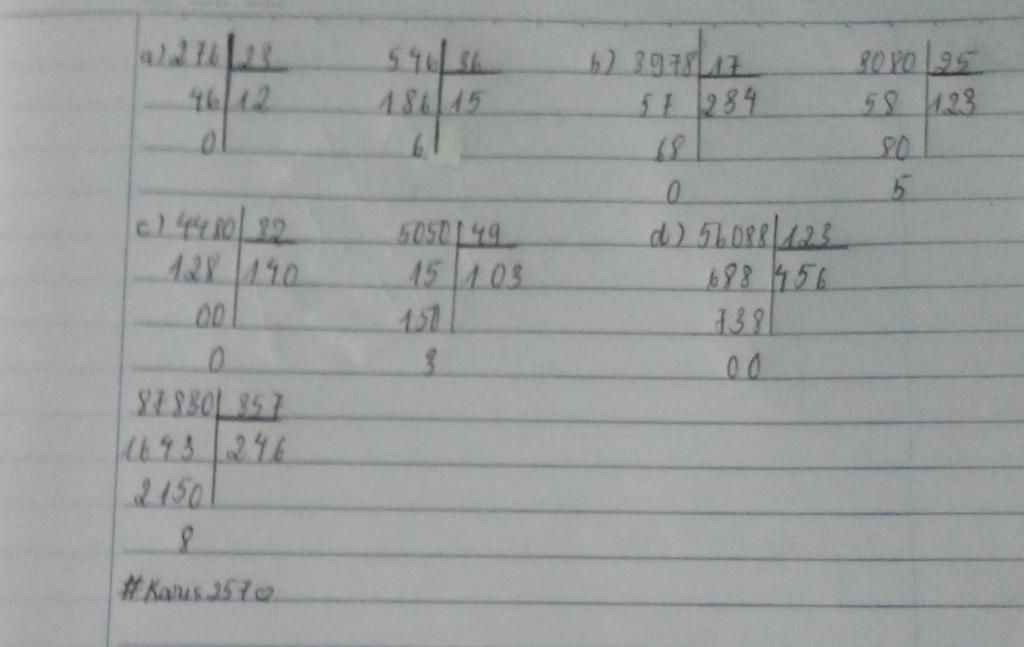 a) 276 23 546 36 b) 3978 17 3080 25
46 12 186 15 57 234 58 123
0 6 68 80
0 5
c) 4480 32 5050 49 d) 56088 123
128 140 15 103 688 456
00 150 738
0 3 00
87830 357
1643 246
2150
8